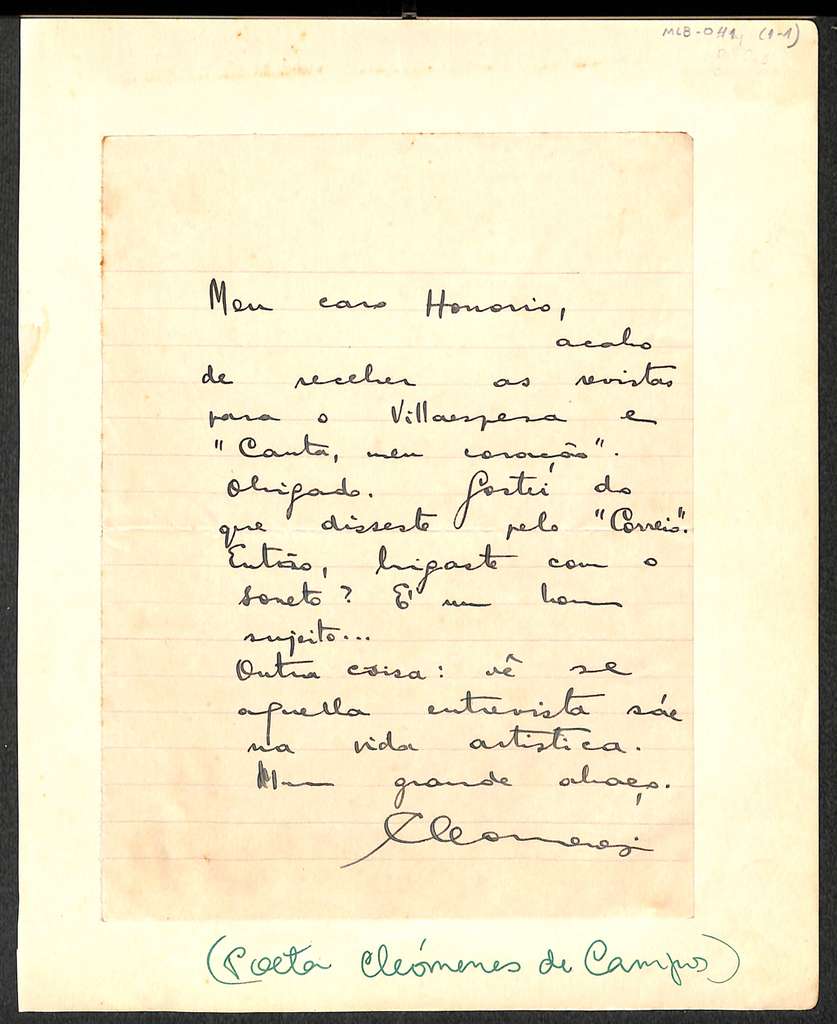 MLB-041 (1-1)
Meu caro Honorio,
acabo
de receber as revistas
para o Villaespesa e
"Canta, meu coração".
Obrigado. Gostei do
que disseste pelo "Correio".
Então, brigaste com o
soneto? E' um bom
sujeito...
Outra coisa: vê se
aquella entrevista sáe
na vida artistica.
Um grande abraço.
Cleomenes
(Poeta Cleómenes de Campos)